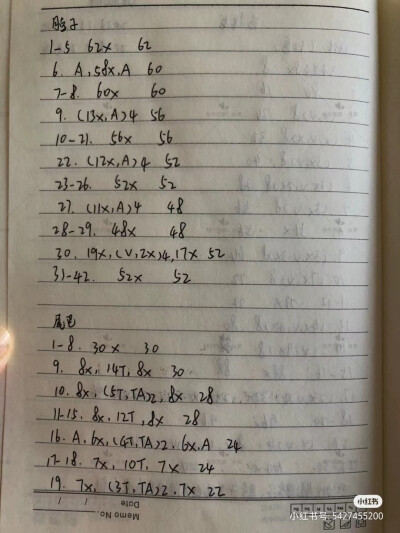 脖子
1-5 62x 62
6. A,58x,A 60
7-8. 60x 60
9. (13x,A)4 56
10-21. 56x 56
22. (12x,A)4 52
23-26. 52x 52
27. (11x,A)4 48
28-29. 48x 48
30. 19x,(V,2x)4,17x 52
31-42. 52x 52
尾巴
1-8. 30x 30
9. 8x,14T,8x 30
10. 8x,(5T,TA)2,8x 28
11-15. 8x,12T,8x 28
16. A,6x,(4T,TA)2,6x,A 24
17-18. 7x,10T,7x 24
19. 7x,(3T,TA)2,7x 22
Memo No.
Date / /
小红书
小红书号: 5427455200